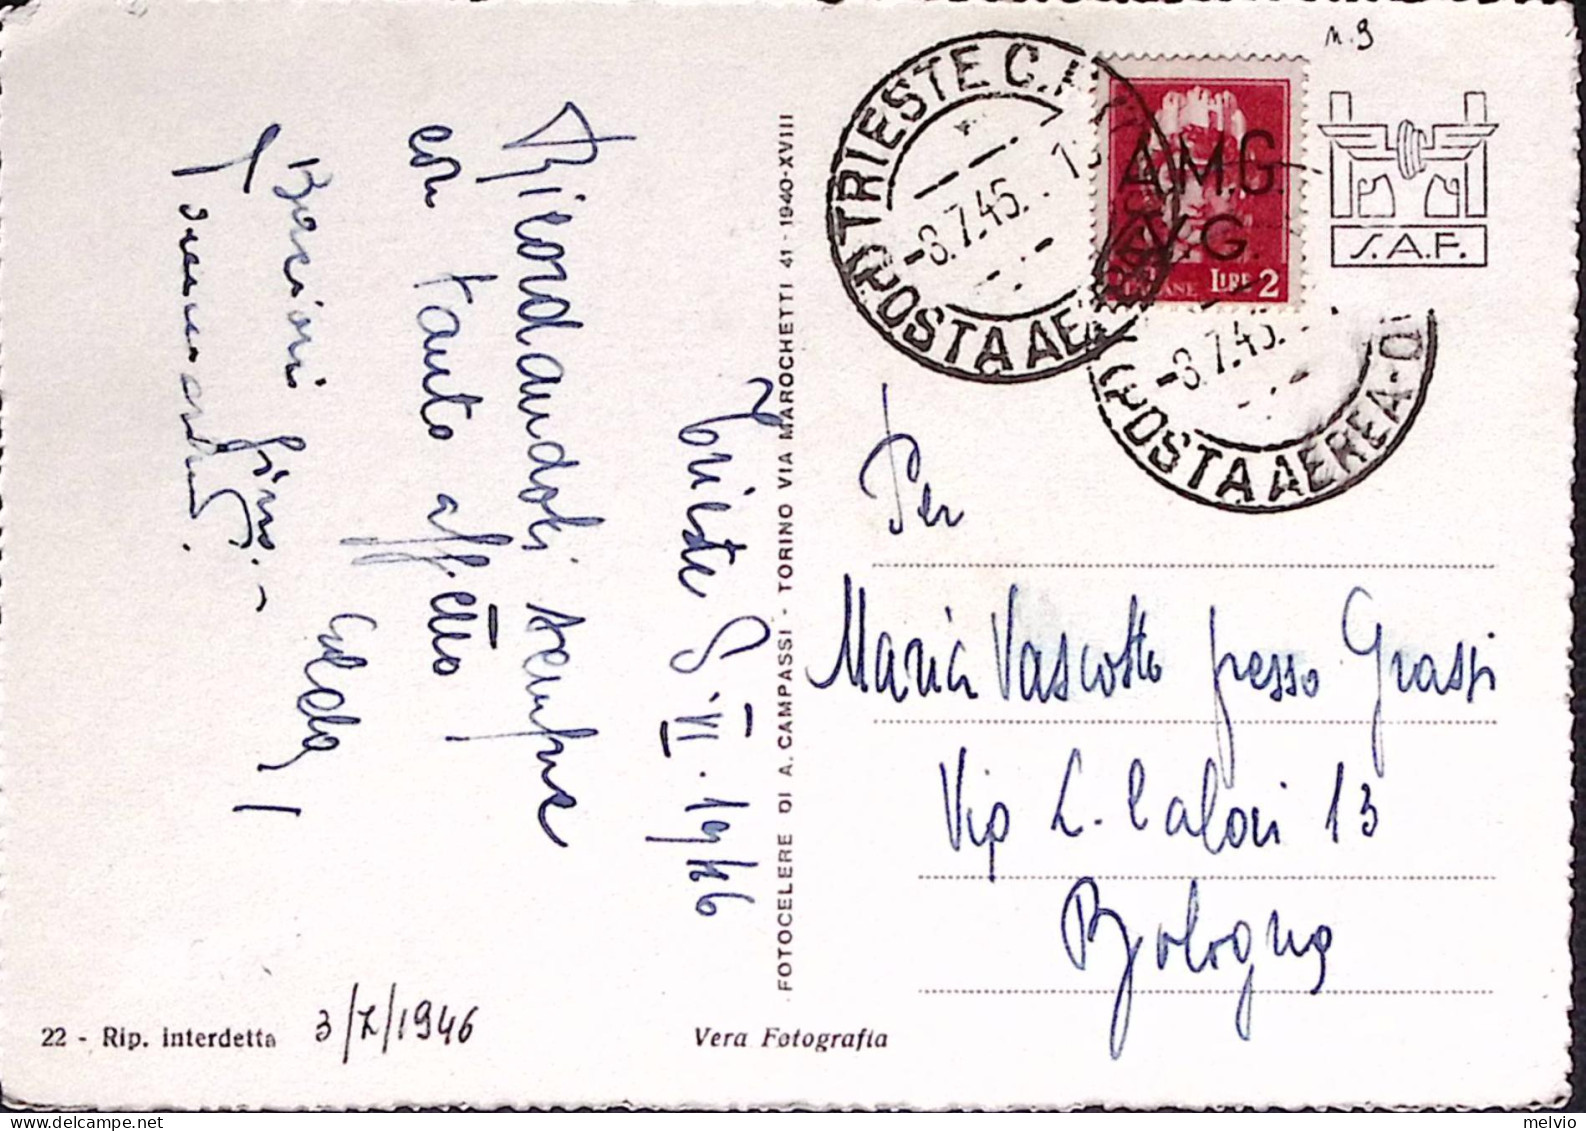 n. 9
TRIESTE C.
POSTA AEREA
-8.7.45.
A.M.G.
V.G.
LIRE 2
S.A.F.
-8.7.45.
POSTA AEREA
Trieste 8·VI·1946
Ricordandoti sempre
con tanto affetto!
Bacioni
Per
Maria Vascotto presso Grassi
Via L. Calori 13
Bologna
FOTOCELERE DI A. CAMPASSI - TORINO VIA MAROCHETTI 41 - 1940-XVIII
22 - Rip. interdetta
3/7/1946
Vera Fotografia
melvio